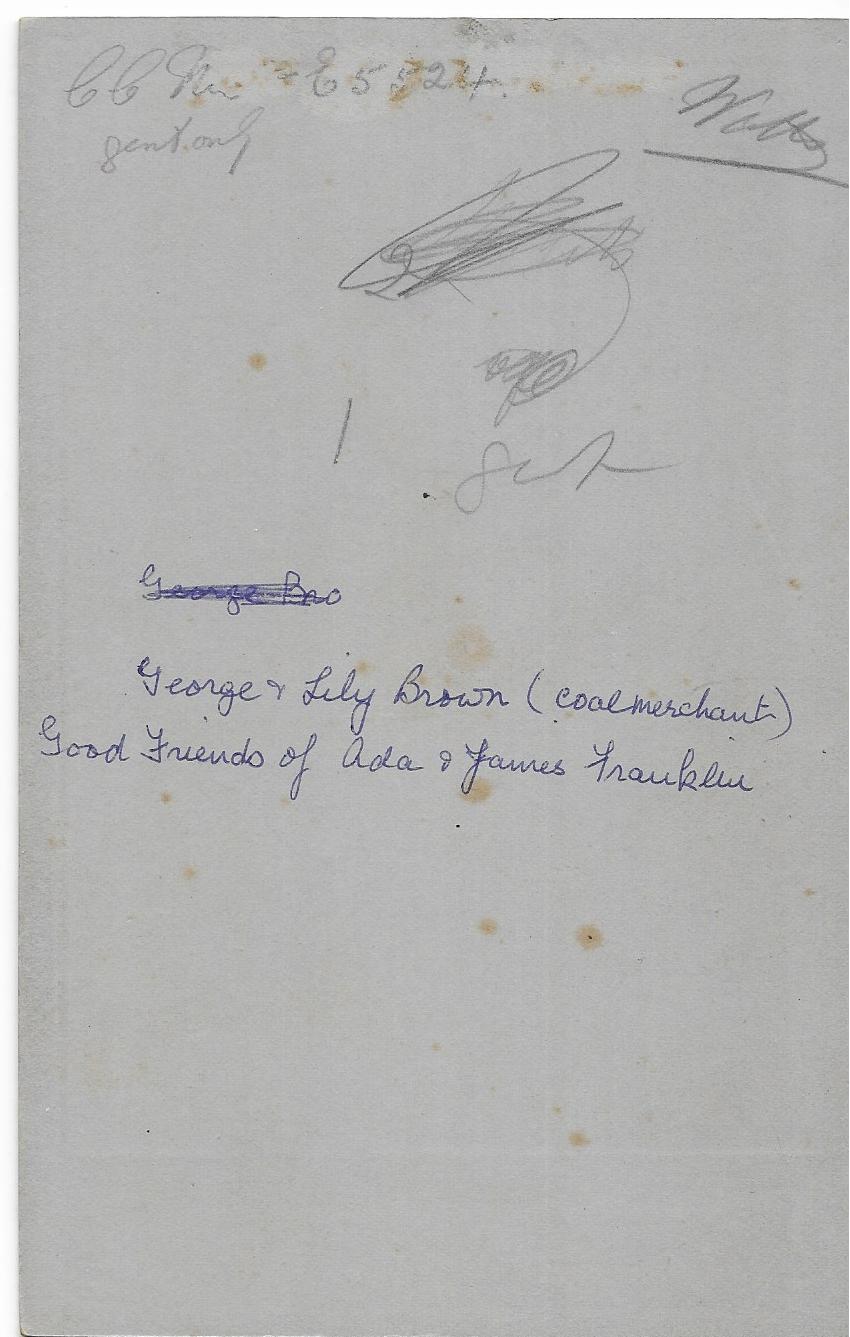 CC E5524.
gent only
Watts
gent
George Bro
George & Lily Brown (coalmerchant)
Good Friends of Ada & James Franklin